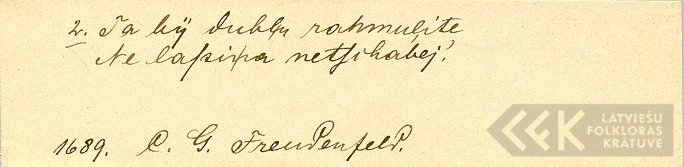 2. Ta bij dubļu rahmulite,
Ne lapiņa netschabej.
1689. C. G. Freudenfeld.
LATVIEŠU
FOLKLORAS
KRĀTUVE